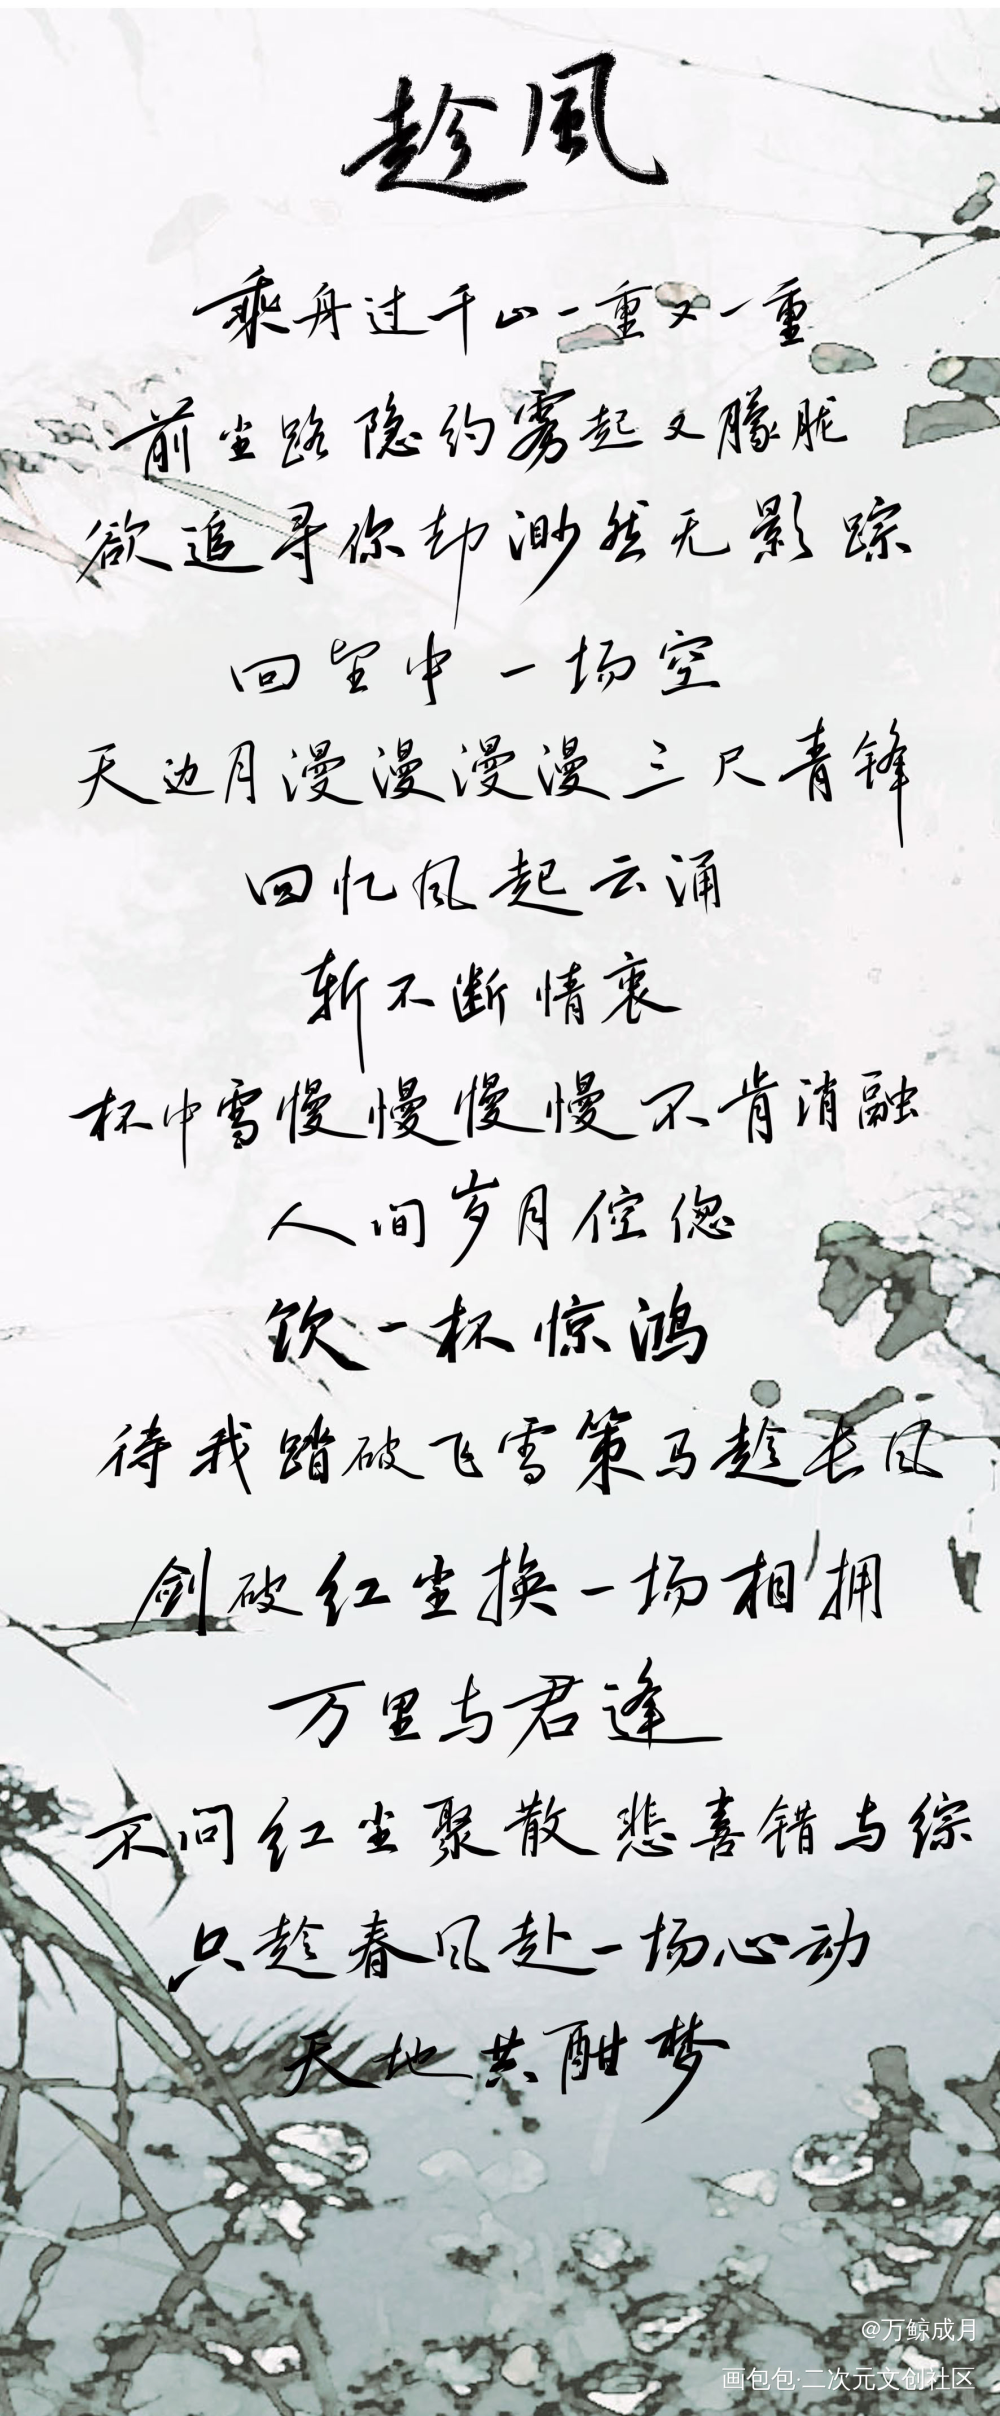 趁風
乘舟过千山一重又一重
前尘路隐约雾起又朦胧
欲追寻你却渺然无影踪
回望中一场空
天边月漫漫漫漫三尺青锋
回忆风起云涌
斩不断情衷
杯中雪慢慢慢慢不肯消融
人间岁月倥偬
饮一杯惊鸿
待我踏破飞雪策马趁长风
剑破红尘换一场相拥
万里与君逢
不问红尘聚散悲喜错与综
只趁春风赴一场心动
天地共酣梦
@万鲸成月
画包包·二次元文创社区